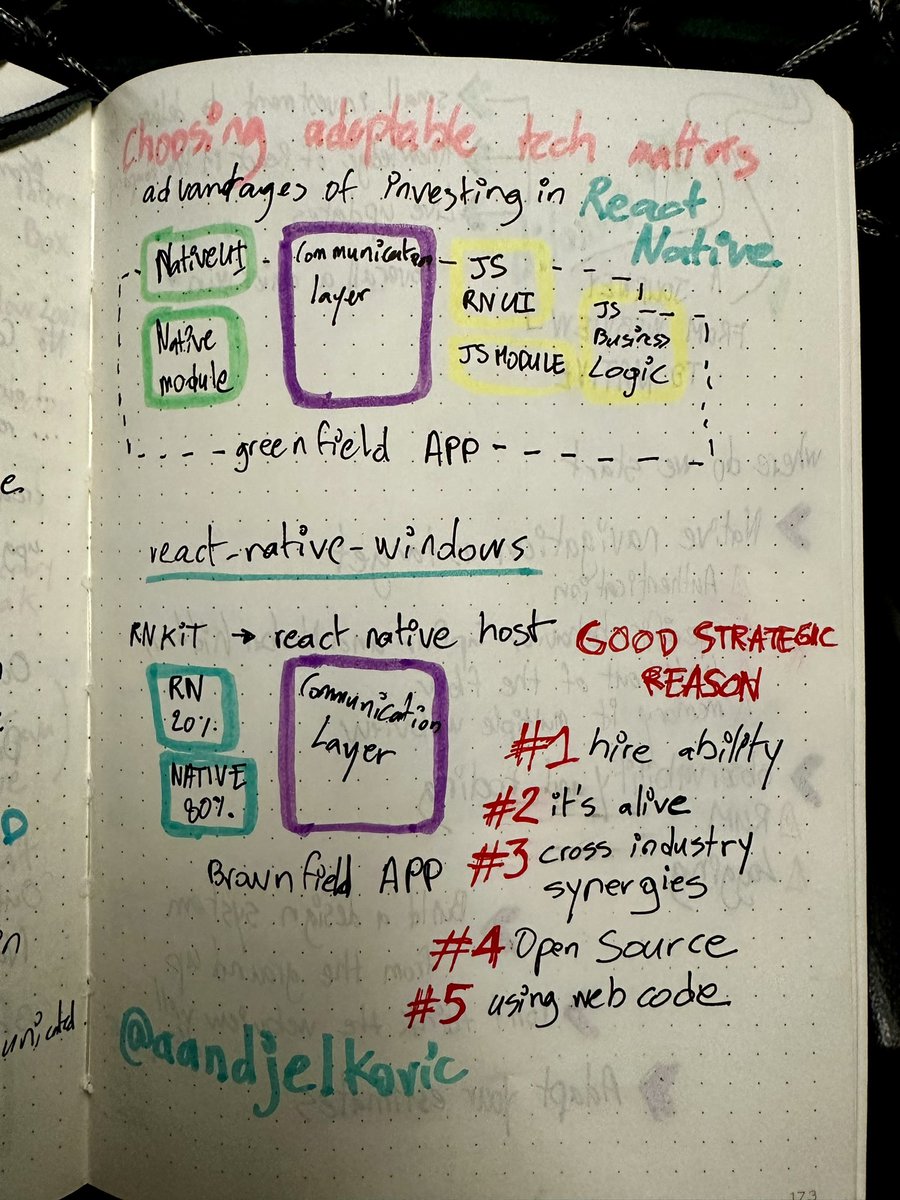 Choosing adoptable tech matters
advantages of investing in React
Native
Native UI
Communication
layer
JS
RN UI
Native
module
JS MODULE
JS
Business
Logic
greenfield APP
react-native-windows
RNKIT → react native host
GOOD STRATEGIC
REASON
RN
20%
NATIVE
80%
Communication
Layer
Brownfield APP
#1 hire ability
#2 it's alive
#3 cross industry
synergies
#4 Open Source
#5 using web code
@aandjelkovic
173